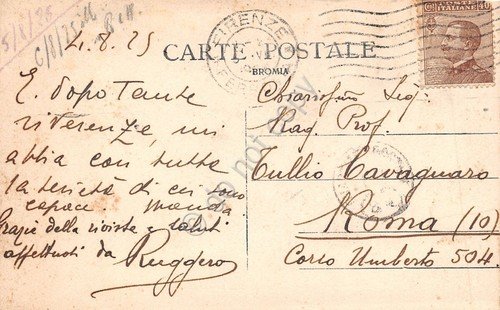 4.8.25
CARTE POSTALE
BROMIA
FIRENZE
FERR
POSTE ITALIANE 40
E. dopo tante
riverenze, mi
abbia con tutta
la serietà di cui sono
capace manda
Grazie della rivista e saluti
affettuosi da Ruggero
Chiarissimo Sig.
Rag. Prof.
Tullio Cavagnaro
Roma (10)
Corso Umberto 504.
do not copy